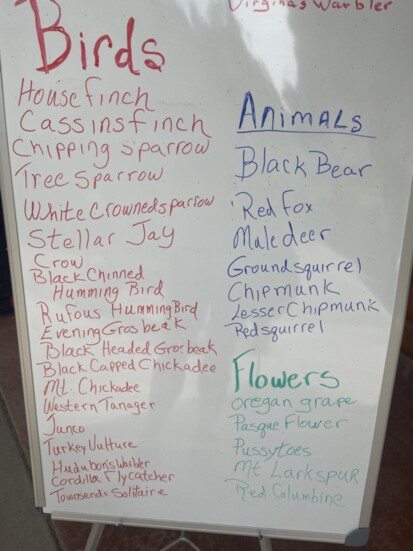 Birds
House finch
Cassins finch
Chipping Sparrow
Tree Sparrow
White Crowned sparrow
Stellar Jay
Crow
Black Chinned
Humming Bird
Rufous Humming Bird
Evening Grosbeak
Black Headed Grosbeak
Black Capped Chickadee
Mt. Chickadee
Western Tanager
Junco
Turkey Vulture
Cordilla Flycatcher
Townsends Solitaire
Virginas Warbler
Animals
Black Bear
Red Fox
Mule deer
Ground squirrel
Chipmunk
Lesser Chipmunk
Red squirrel
Flowers
Oregan grape
Pasque Flower
Pussytoes
Mt Larkspur
Red Columbine